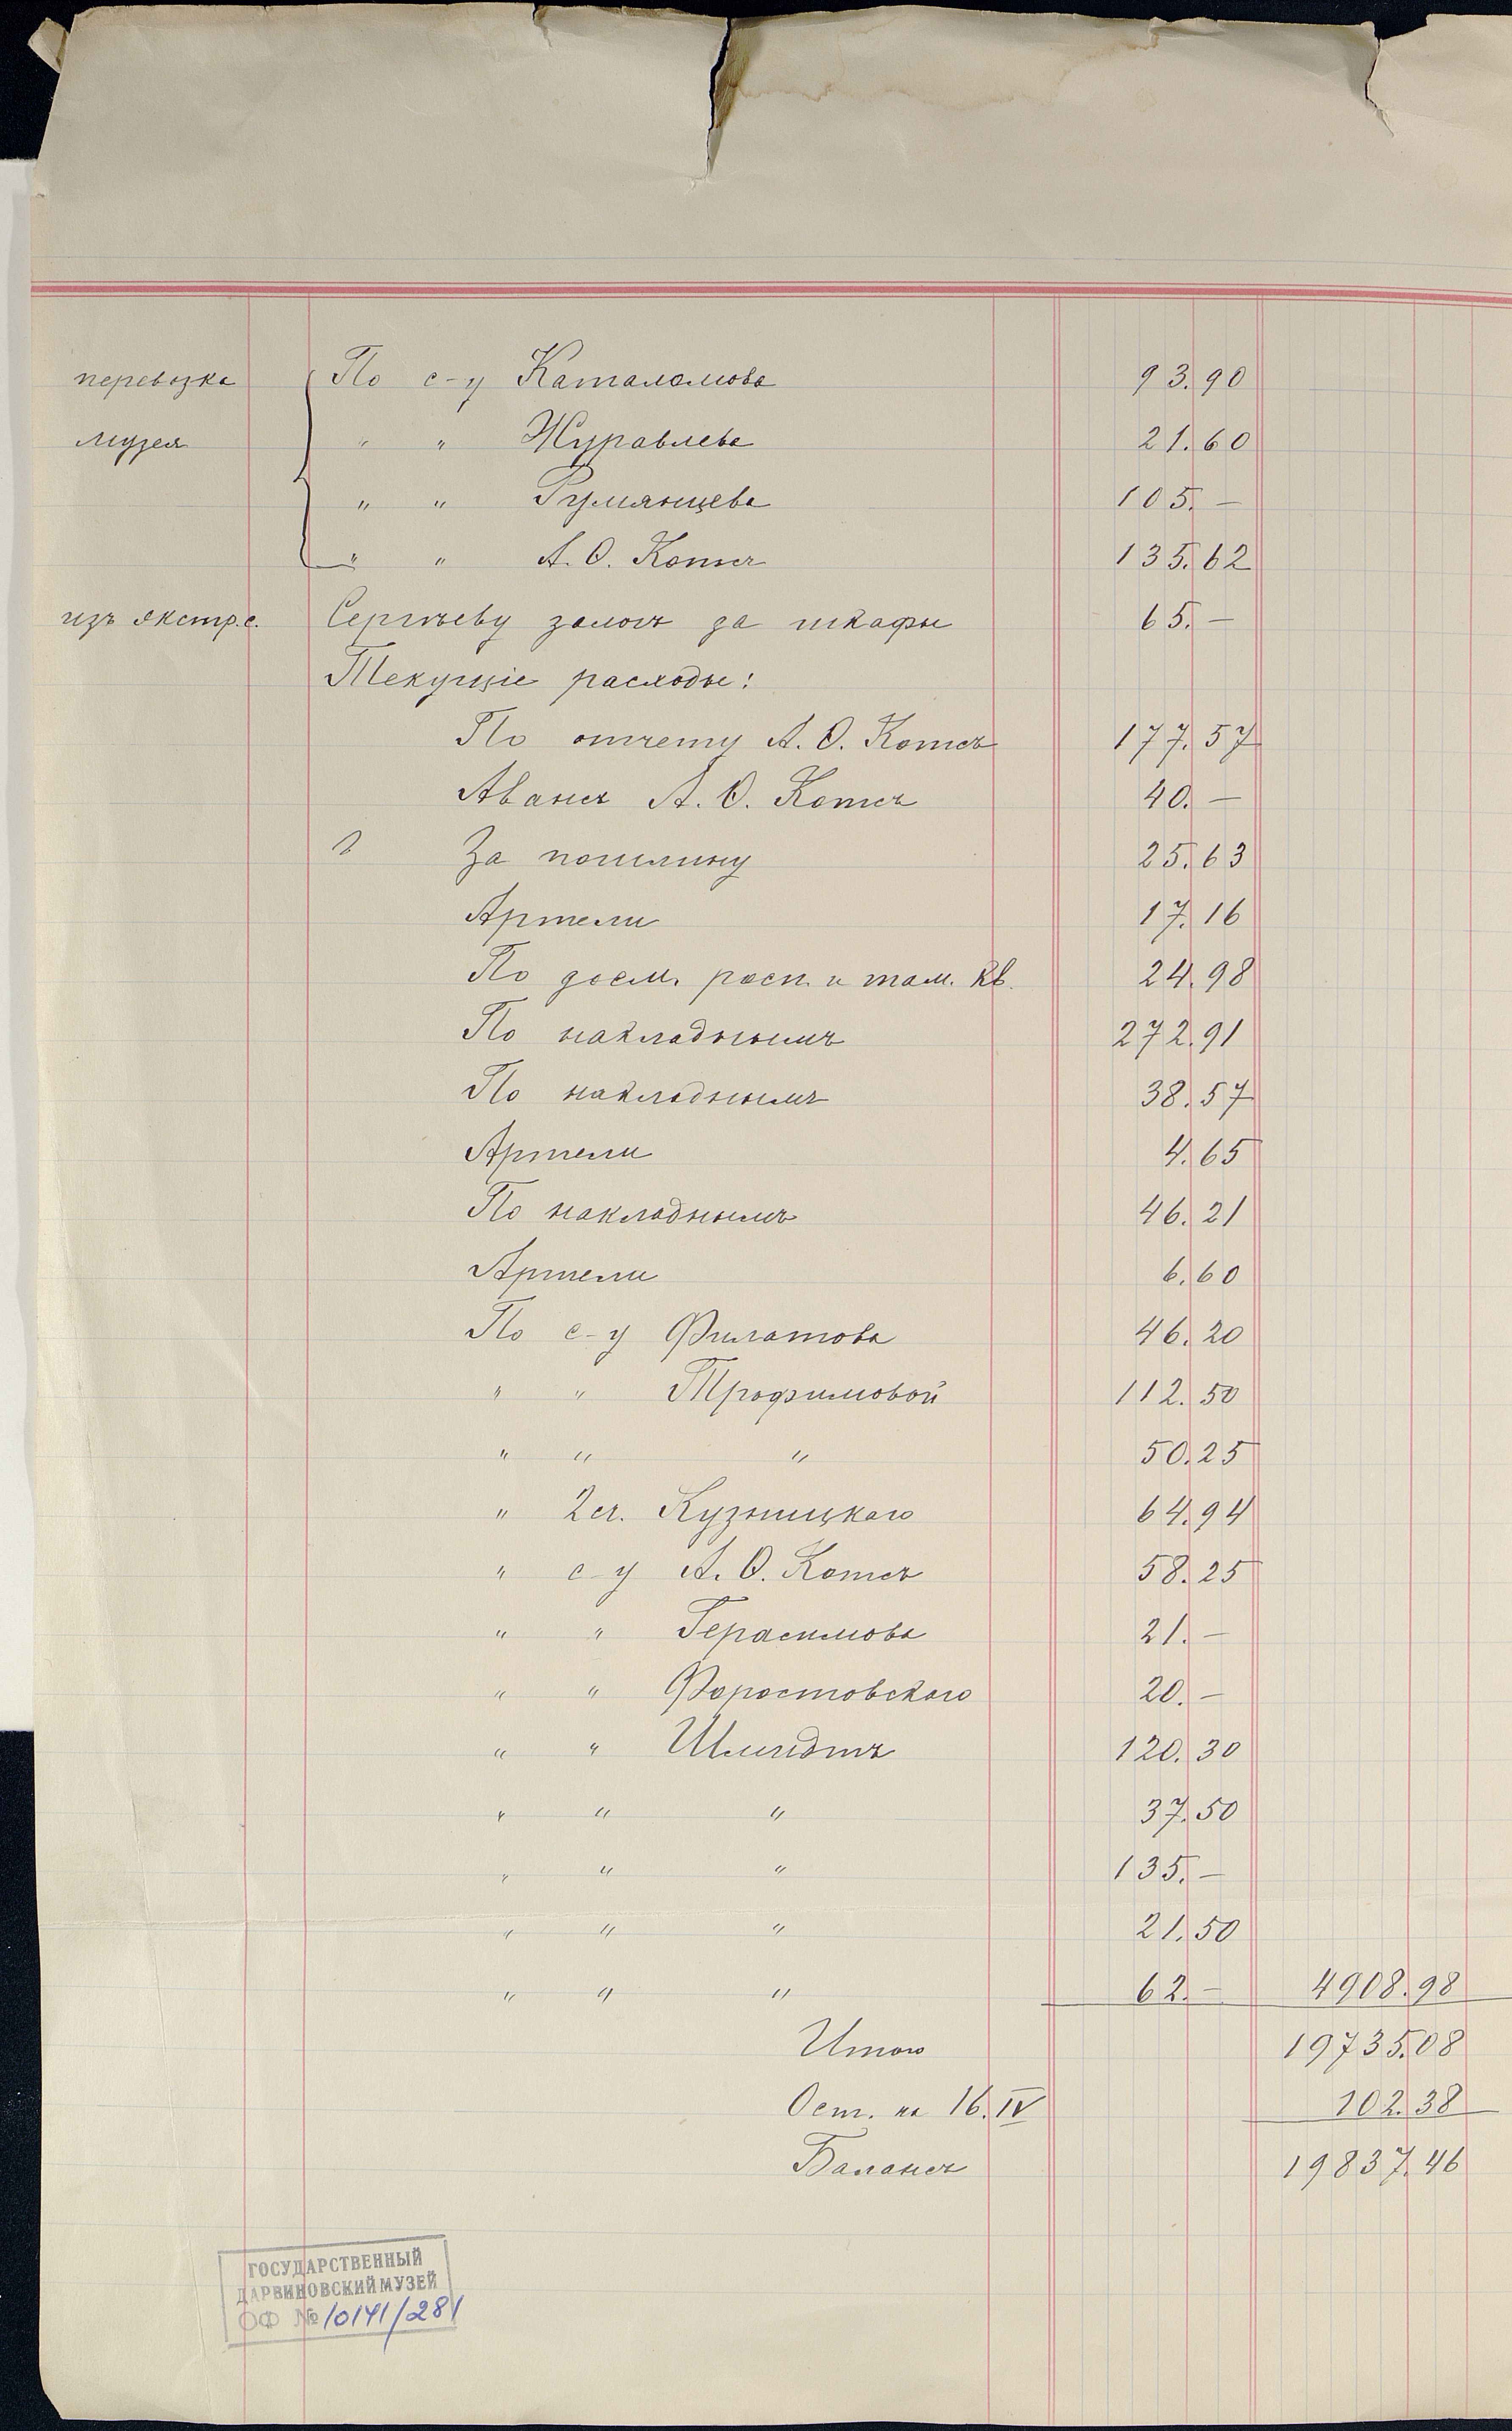 перевозка По с-у Каталамова 93.90
музея " " Журавлева 21.60
" " Румянцева 105.—
" " А. Ѳ. Котсъ 135.62
изъ экстр. с. Сергѣеву залогъ за шкафы 65.—
Текущіе расходы:
По отчету А. Ѳ. Котсъ 177.57
Авансъ А. Ѳ. Котсъ 40.—
За пошлину 25.63
Артели 17.16
По досм. росп. и там. кв. 24.98
По накладнымъ 272.91
По накладнымъ 38.57
Артели 4.65
По накладнымъ 46.21
Артели 6.60
По с-у Филатова 46.20
" " Трофимовой 112.50
" " " 50.25
" 2 сч. Кузницкаго 64.94
" с-у А. Ѳ. Котсъ 58.25
" " Герасимова 21.—
" " Форостовскаго 20.—
" " Шмидтъ 120.30
" " " 37.50
" " " 135.—
" " " 21.50
" " " 62.— 4908.98
Итого 19735.08
Ост. на 16.IV 102.38
Балансъ 19837.46
ГОСУДАРСТВЕННЫЙ
ДАРВИНОВСКИЙ МУЗЕЙ
ОФ № 10141/281